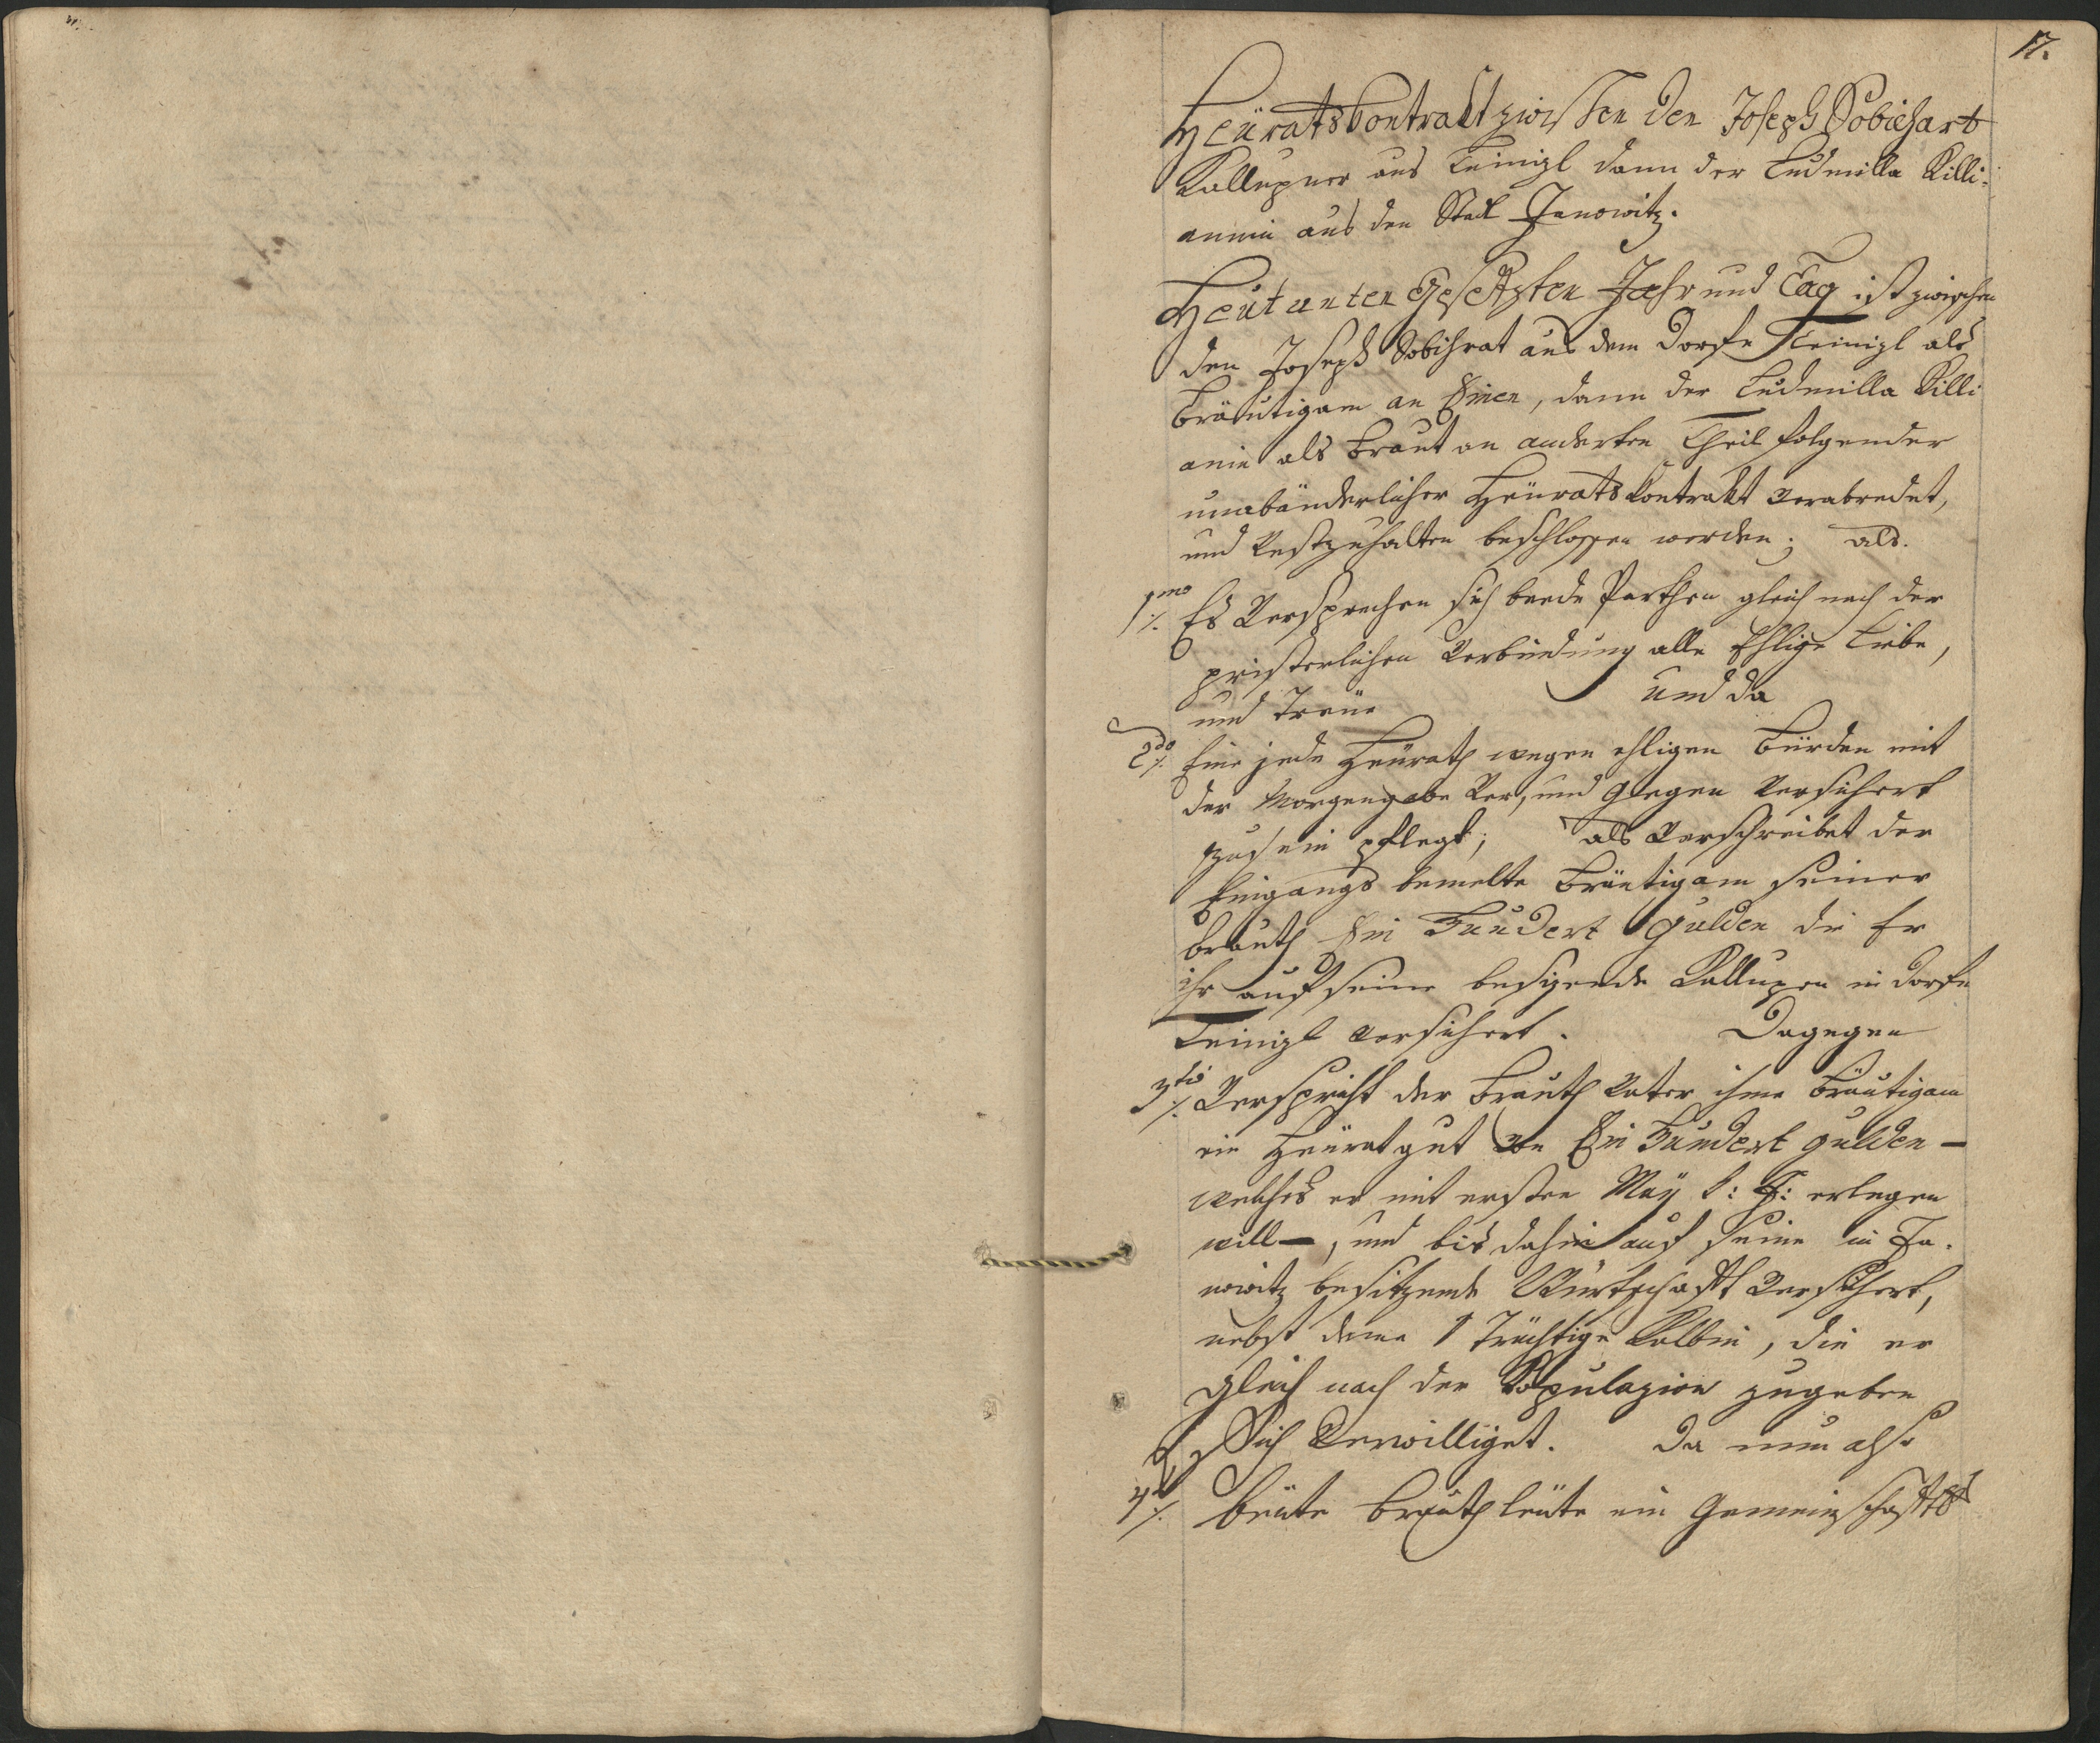 17.
Heüratskontrakt zwischen den Joseph Sobiehart
Kallupner aus Teinizl dann der Ludmilla Killi-
annin aus den Stadl Janowitz.
Heut unten gesetzten Jahr und Tag ist zwischen
den Joseph Sobihrat aus dem Dorfe Teinizl als
Bräutigam an Einen, dann der Ludmilla Killi
anin als Braut an anderten Theil folgender
unabänderlicher Heürats Kontrakt verabredet,
und Vestzuhalten beschlossen worden; als.
1mo Es Versprechen sich beede Parthen gleich nach der
pristerlichen Verbindung alle Ehlige Liebe,
und Treüe und da
2do Eine jede Heürath wegen ehligen Bürden mit
der Morgengabe Ver, und Gegen Versichert
zu sein pflegt; als Verschreibet der
Eingangs bemelte Bräutigam seiner
Brauth Ein Hundert Gulden die Er
ihr auf seine besizende Kallupen in Dorfe
Teinizl versichert. Dagegen
3tio Verspricht der Brauth Vater ihme Bräutigam
ein Heüratgut von Ein Hundert Gulden —
welches er mit ersten May k: J: erlegen
will —, und bis dahin auf seine in Ja-
nowitz besitzende Würtschaft Versichert,
nebst deme 1 Trächtige Kalbin, die er
gleich nach der Kopulazion zugeben
Sich Verwilliget. Da nun also
4to beüte Brauthleüte ein Gemeinschafts